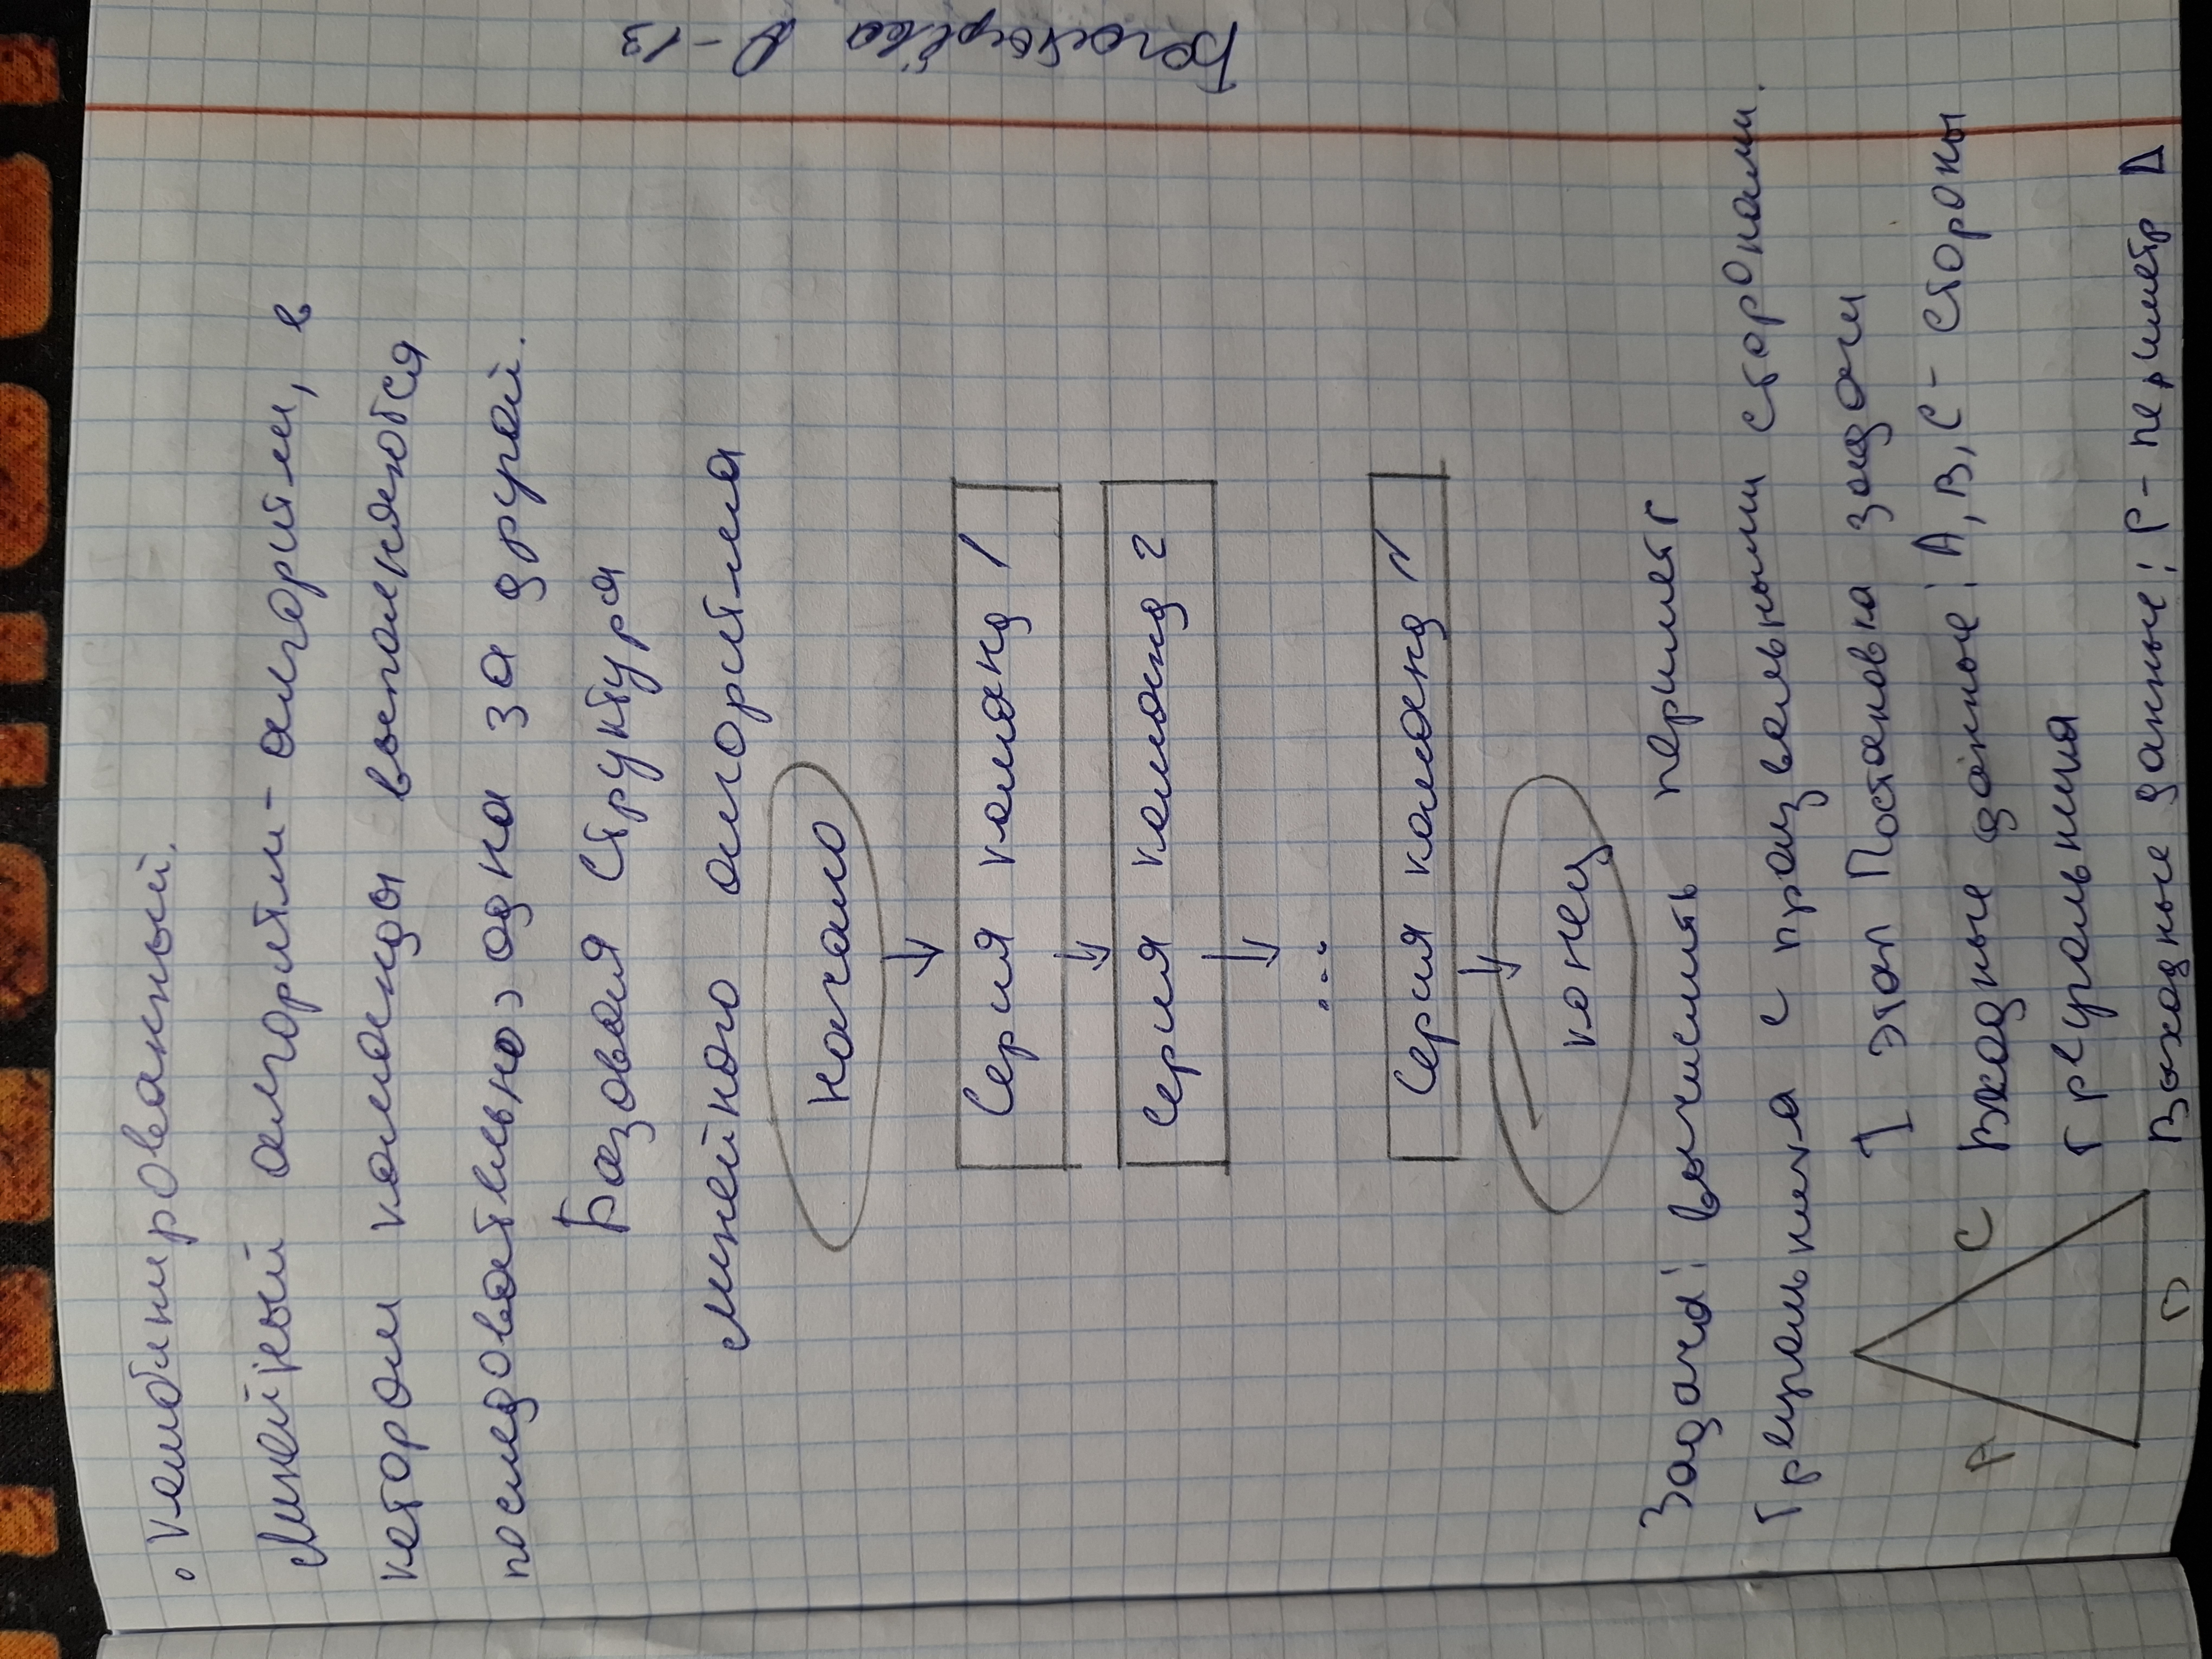 • комбинированный.
Линейный алгоритм - алгоритм, в
котором команды выполняются
последовательно, одна за другой.
Базовая структура
линейного алгоритма
начало
Серия команд 1
Серия команд 2
...
Серия команд N
конец
Задача: вычислить периметр
треугольника с произвольными сторонами.
I этап Постановка задачи
A C Входные данные: A, B, C - стороны
треугольника
B Выходные данные: P - периметр Δ